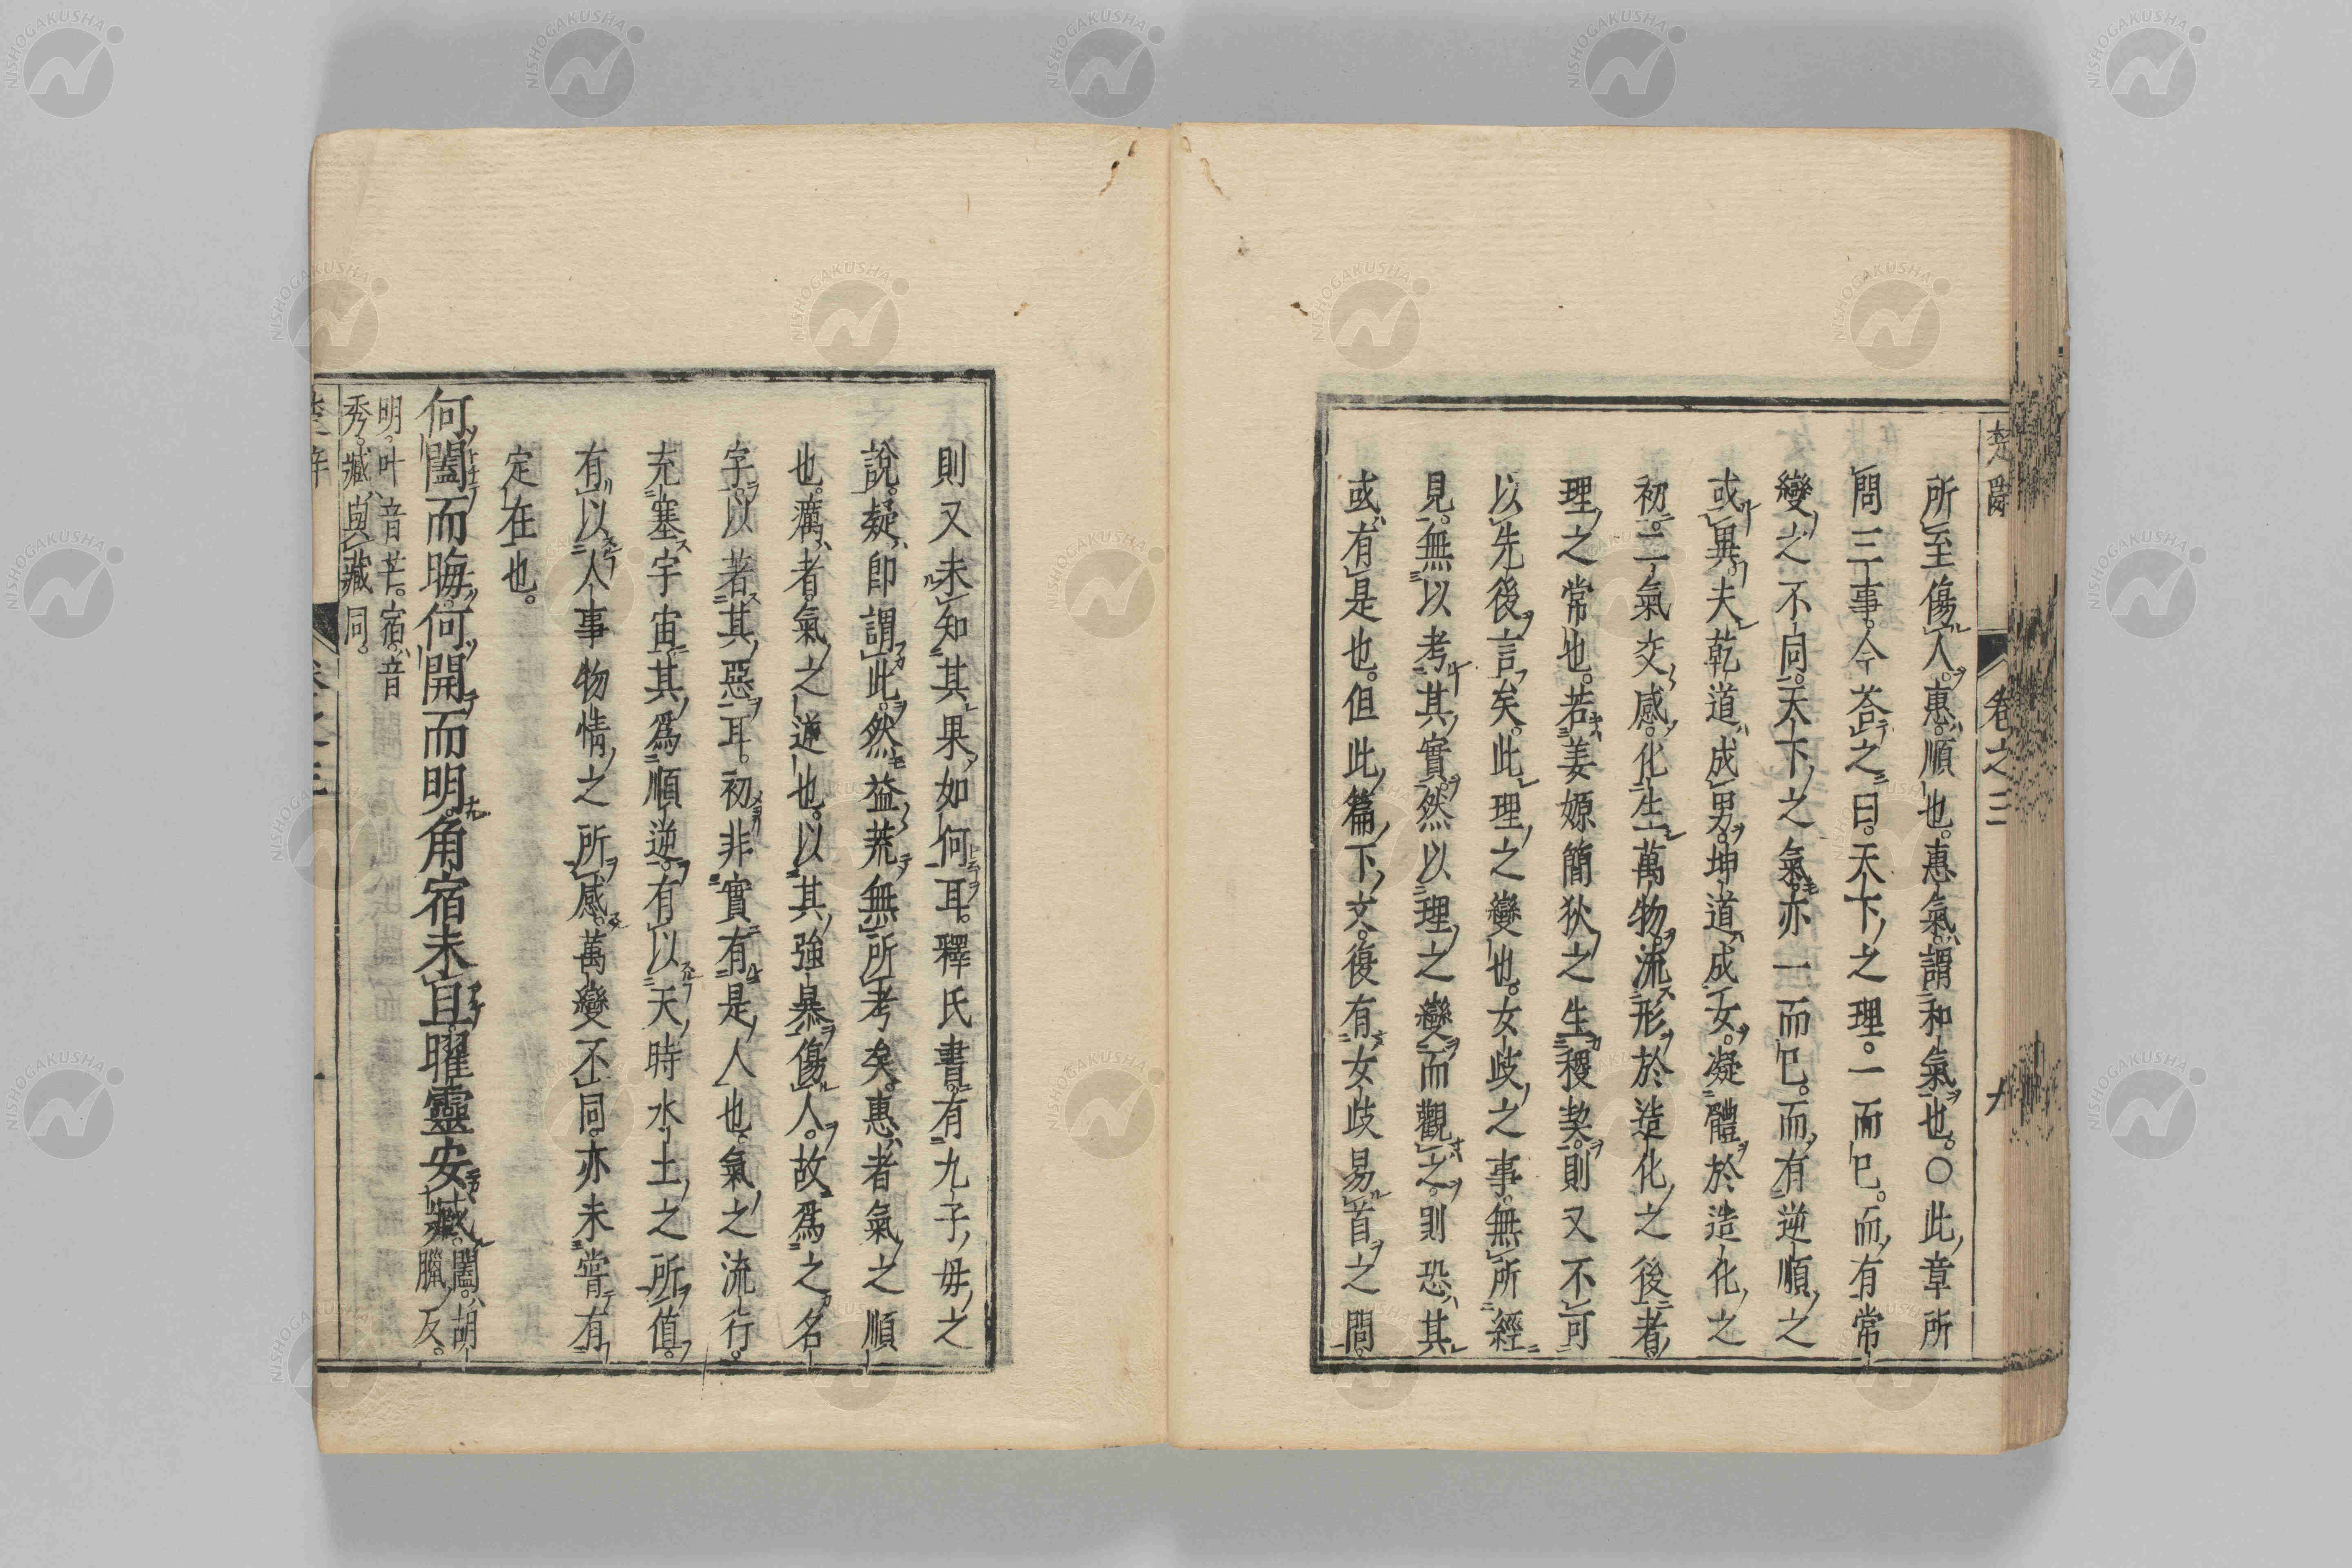 楚辭 卷之三 十
所至傷人。惠。順也。惠氣。謂和氣也。○此章所
問三事。今荅之曰。天下之理。一而已。而有常
變之不同。天下之氣。亦一而已。而有逆順之
或異。夫乾道成男。坤道成女。凝體於造化之
初。二氣交感。化生萬物。流形於造化之後者。
理之常也。若姜嫄簡狄之生稷契。則又不可
以先後言矣。此理之變也。女歧之事。無所經
見。無以考其實。然以理之變而觀之。則恐其
或有是也。但此篇下文。復有女歧易首之問。
則又未知其果如何耳。釋氏書。有九子母之
說。疑即謂此。然益荒無所考矣。惠者氣之順
也。癘者氣之逆也。以其強暴傷人。故爲之名
字。以著其惡耳。初非實有是人也。氣之流行。
充塞宇宙。其爲順逆。有以天時水土之所値。
有以人事物情之所感。萬變不同。亦未嘗有
定在也。
何闔而晦。何開而明。角宿未旦。曜靈安藏。闔。胡臘反。
明。叶音芒。宿。音
秀。臧與藏同。
NISHOGAKUSHA